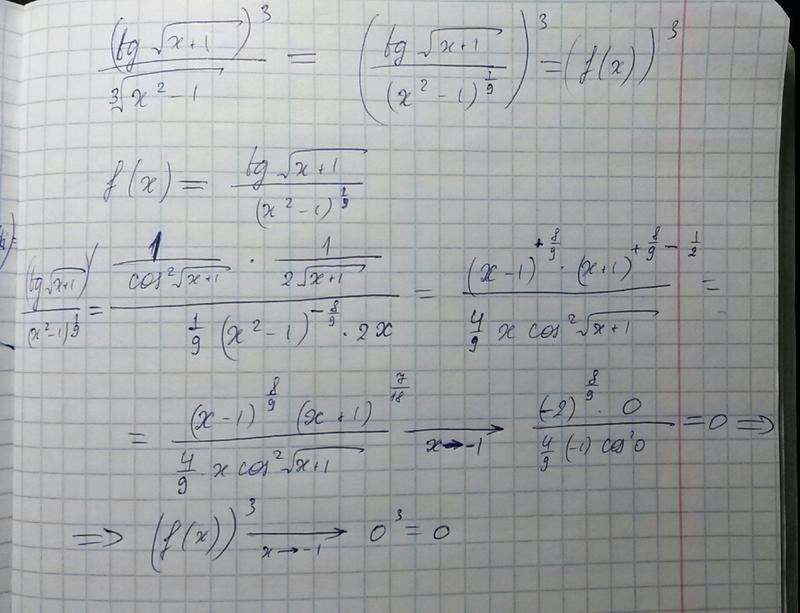 (tg √(x+1))³ / ∛(x²-1) = (tg √(x+1) / (x²-1)^(1/9))³ = (f(x))³
f(x) = tg √(x+1) / (x²-1)^(1/9)
(tg √(x+1))' / (x²-1)^(1/9) = (1/(cos² √(x+1)) · 1/(2√(x+1))) / (1/9 (x²-1)^(-8/9) · 2x) = ((x-1)^(+8/9) · (x+1)^(+8/9 - 1/2)) / (4/9 x cos² √(x+1)) =
= ((x-1)^(8/9) (x+1)^(7/18)) / (4/9 x cos² √(x+1)) → x→-1 ((-2)^(8/9) · 0) / (4/9 (-1) cos² 0) = 0 ⇒
⇒ (f(x))³ → x→-1 0³ = 0